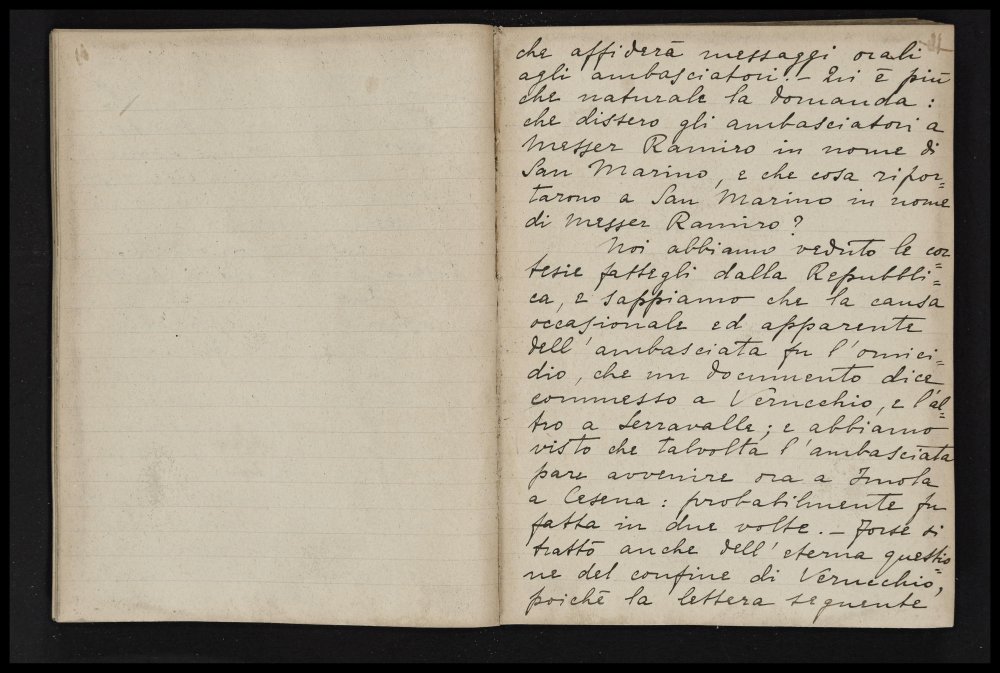 che affiderà messaggi orali
agli ambasciatori. – Qui è più
che naturale la domanda:
che dissero gli ambasciatori a
Messer Ramiro in nome di
San Marino, e che cosa ripor=
tarono a San Marino in nome
di Messer Ramiro?
Noi abbiamo veduto le cor=
tesie fattegli dalla Repubbli=
ca, e sappiamo che la causa
occasionale ed apparente
dell'ambasciata fu l'omici=
dio, che un documento dice
commesso a Verucchio, e l'al=
tro a Serravalle; e abbiamo
visto che talvolta l'ambasciata
pare avvenire ora a Imola
a Cesena: probabilmente fu
fatta in due volte. – Forse si
trattò anche dell'eterna questio=
ne del confine di Verucchio,
poichè la lettera seguente